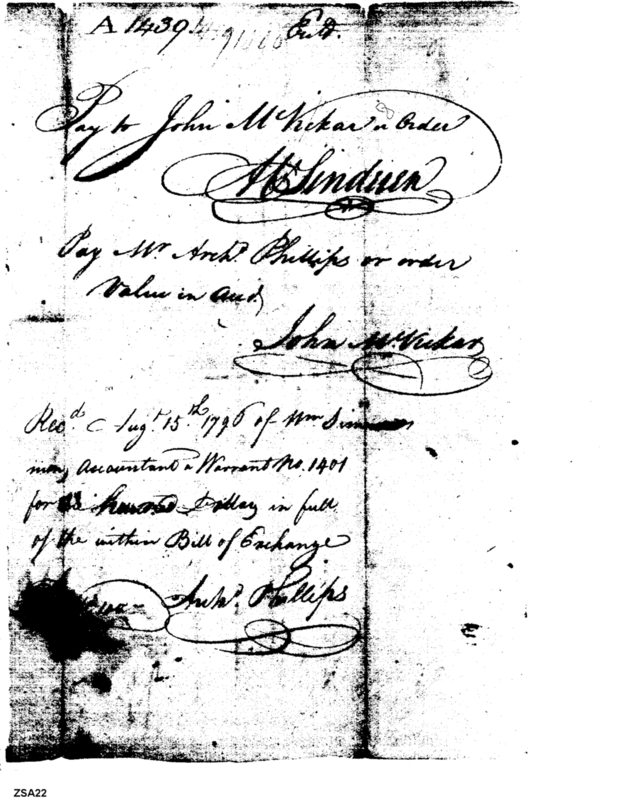 A 1439
Entd.
Pay to John McVickar or Order
Pay Mr. Archd. Phillips or order
Value in acct
John McVickar
Recd. Augt. 15.th 1796 of Wm Sim
mons Accountant a Warrant No. 1401
for hundred Dollars in full
of the within Bill of Exchange
Archd. Phillips
ZSA22